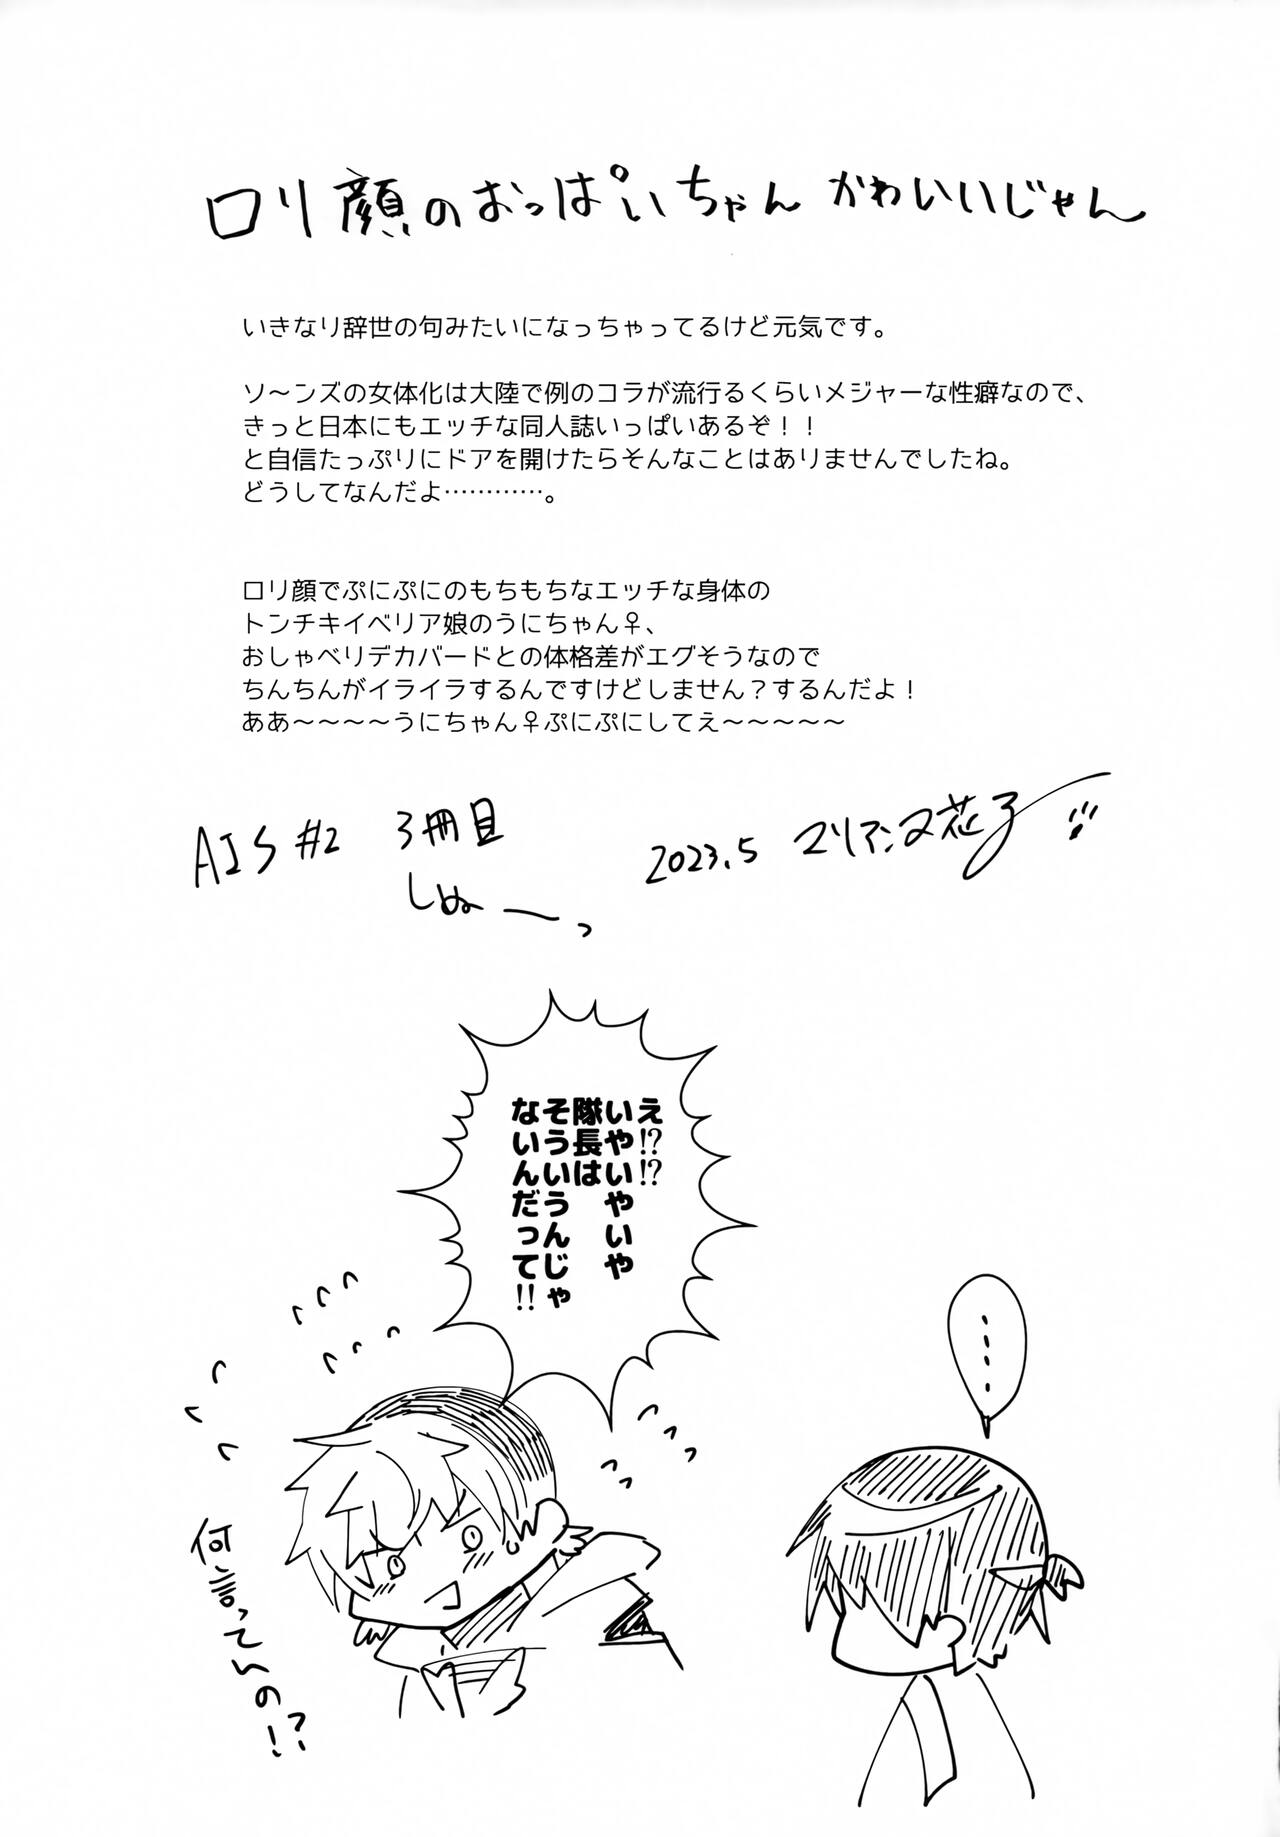 ロリ顔のおっぱいちゃん かわいいじゃん
いきなり辞世の句みたいになっちゃってるけど元気です。
ソ～ンズの女体化は大陸で例のコラが流行るくらいメジャーな性癖なので、
きっと日本にもエッチな同人誌いっぱいあるぞ！！
と自信たっぷりにドアを開けたらそんなことはありませんでしたね。
どうしてなんだよ…………。
ロリ顔でぷにぷにのもちもちなエッチな身体の
トンチキイベリア娘のうにちゃん♀、
おしゃべりデカバードとの体格差がエグそうなので
ちんちんがイライラするんですけどしません？するんだよ！
ああ～～～～うにちゃん♀ぷにぷにしてえ～～～～～
AJS #2 3冊目
しぬーっ
2023.5 マリアンヌ花子
え!?!?
いやいやいや
隊長は
そういうんじゃ
ないんだって!!
‥‥
何言っていの!?